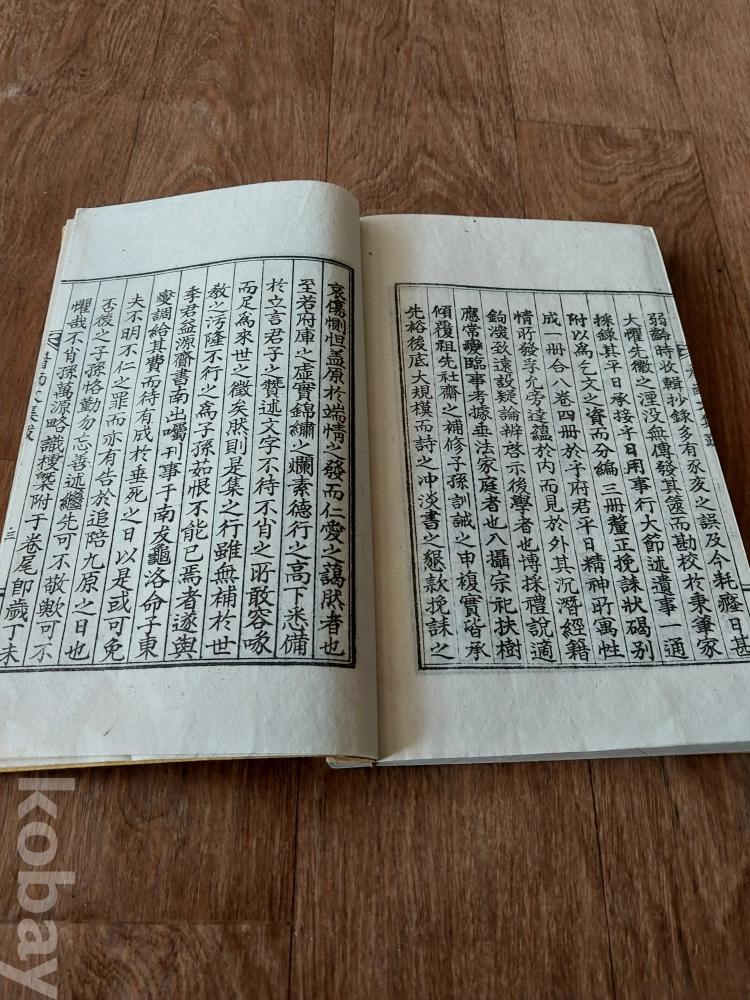 弱齡時收輯抄錄多有豕亥之誤及今耗癃日甚
大懼先徽之湮没無傳發其篋而勘校於秉筆家
採錄其平日承接乎日用事行大節述遺事一通
附以爲乞文之資而分編三冊釐正挽誄狀碣別
成一冊合八卷四冊於乎府君平日精神所寓性
情所發孚允旁達蘊於内而見於外其沉潛經籍
鉤深致遠設疑論辨啓示後學者也博採禮說適
應常變臨事考據垂法家庭者也入攝宗祀扶樹
傾覆祖先社齋之補修子孫訓誡之申複實皆承
先裕後底大規模而詩之冲淡書之懇款挽誄之
哀傷惻怛盖原於端情之發而仁愛之藹然者也
至若府庫之虛實錦繡之爛素德行之高下悉備
於立言君子之贊述文字不待不肖之所敢容喙
而足爲來世之徵矣然則是集之行雖無補於世
敎之汚隆不行之爲子孫茹恨不能已焉者遂與
季君益源齋書南出囑刊事于南友龜洛命子東
燮調給其費而待有成於垂死之日以是或可免
夫不明不仁之罪而亦有告於追陪九原之日也
否後之子孫恪勤勿忘善述繼先可不敬歟可不
懼哉不肖孫萬源略識梗槩附于卷尾郎歲丁未
三
kobay